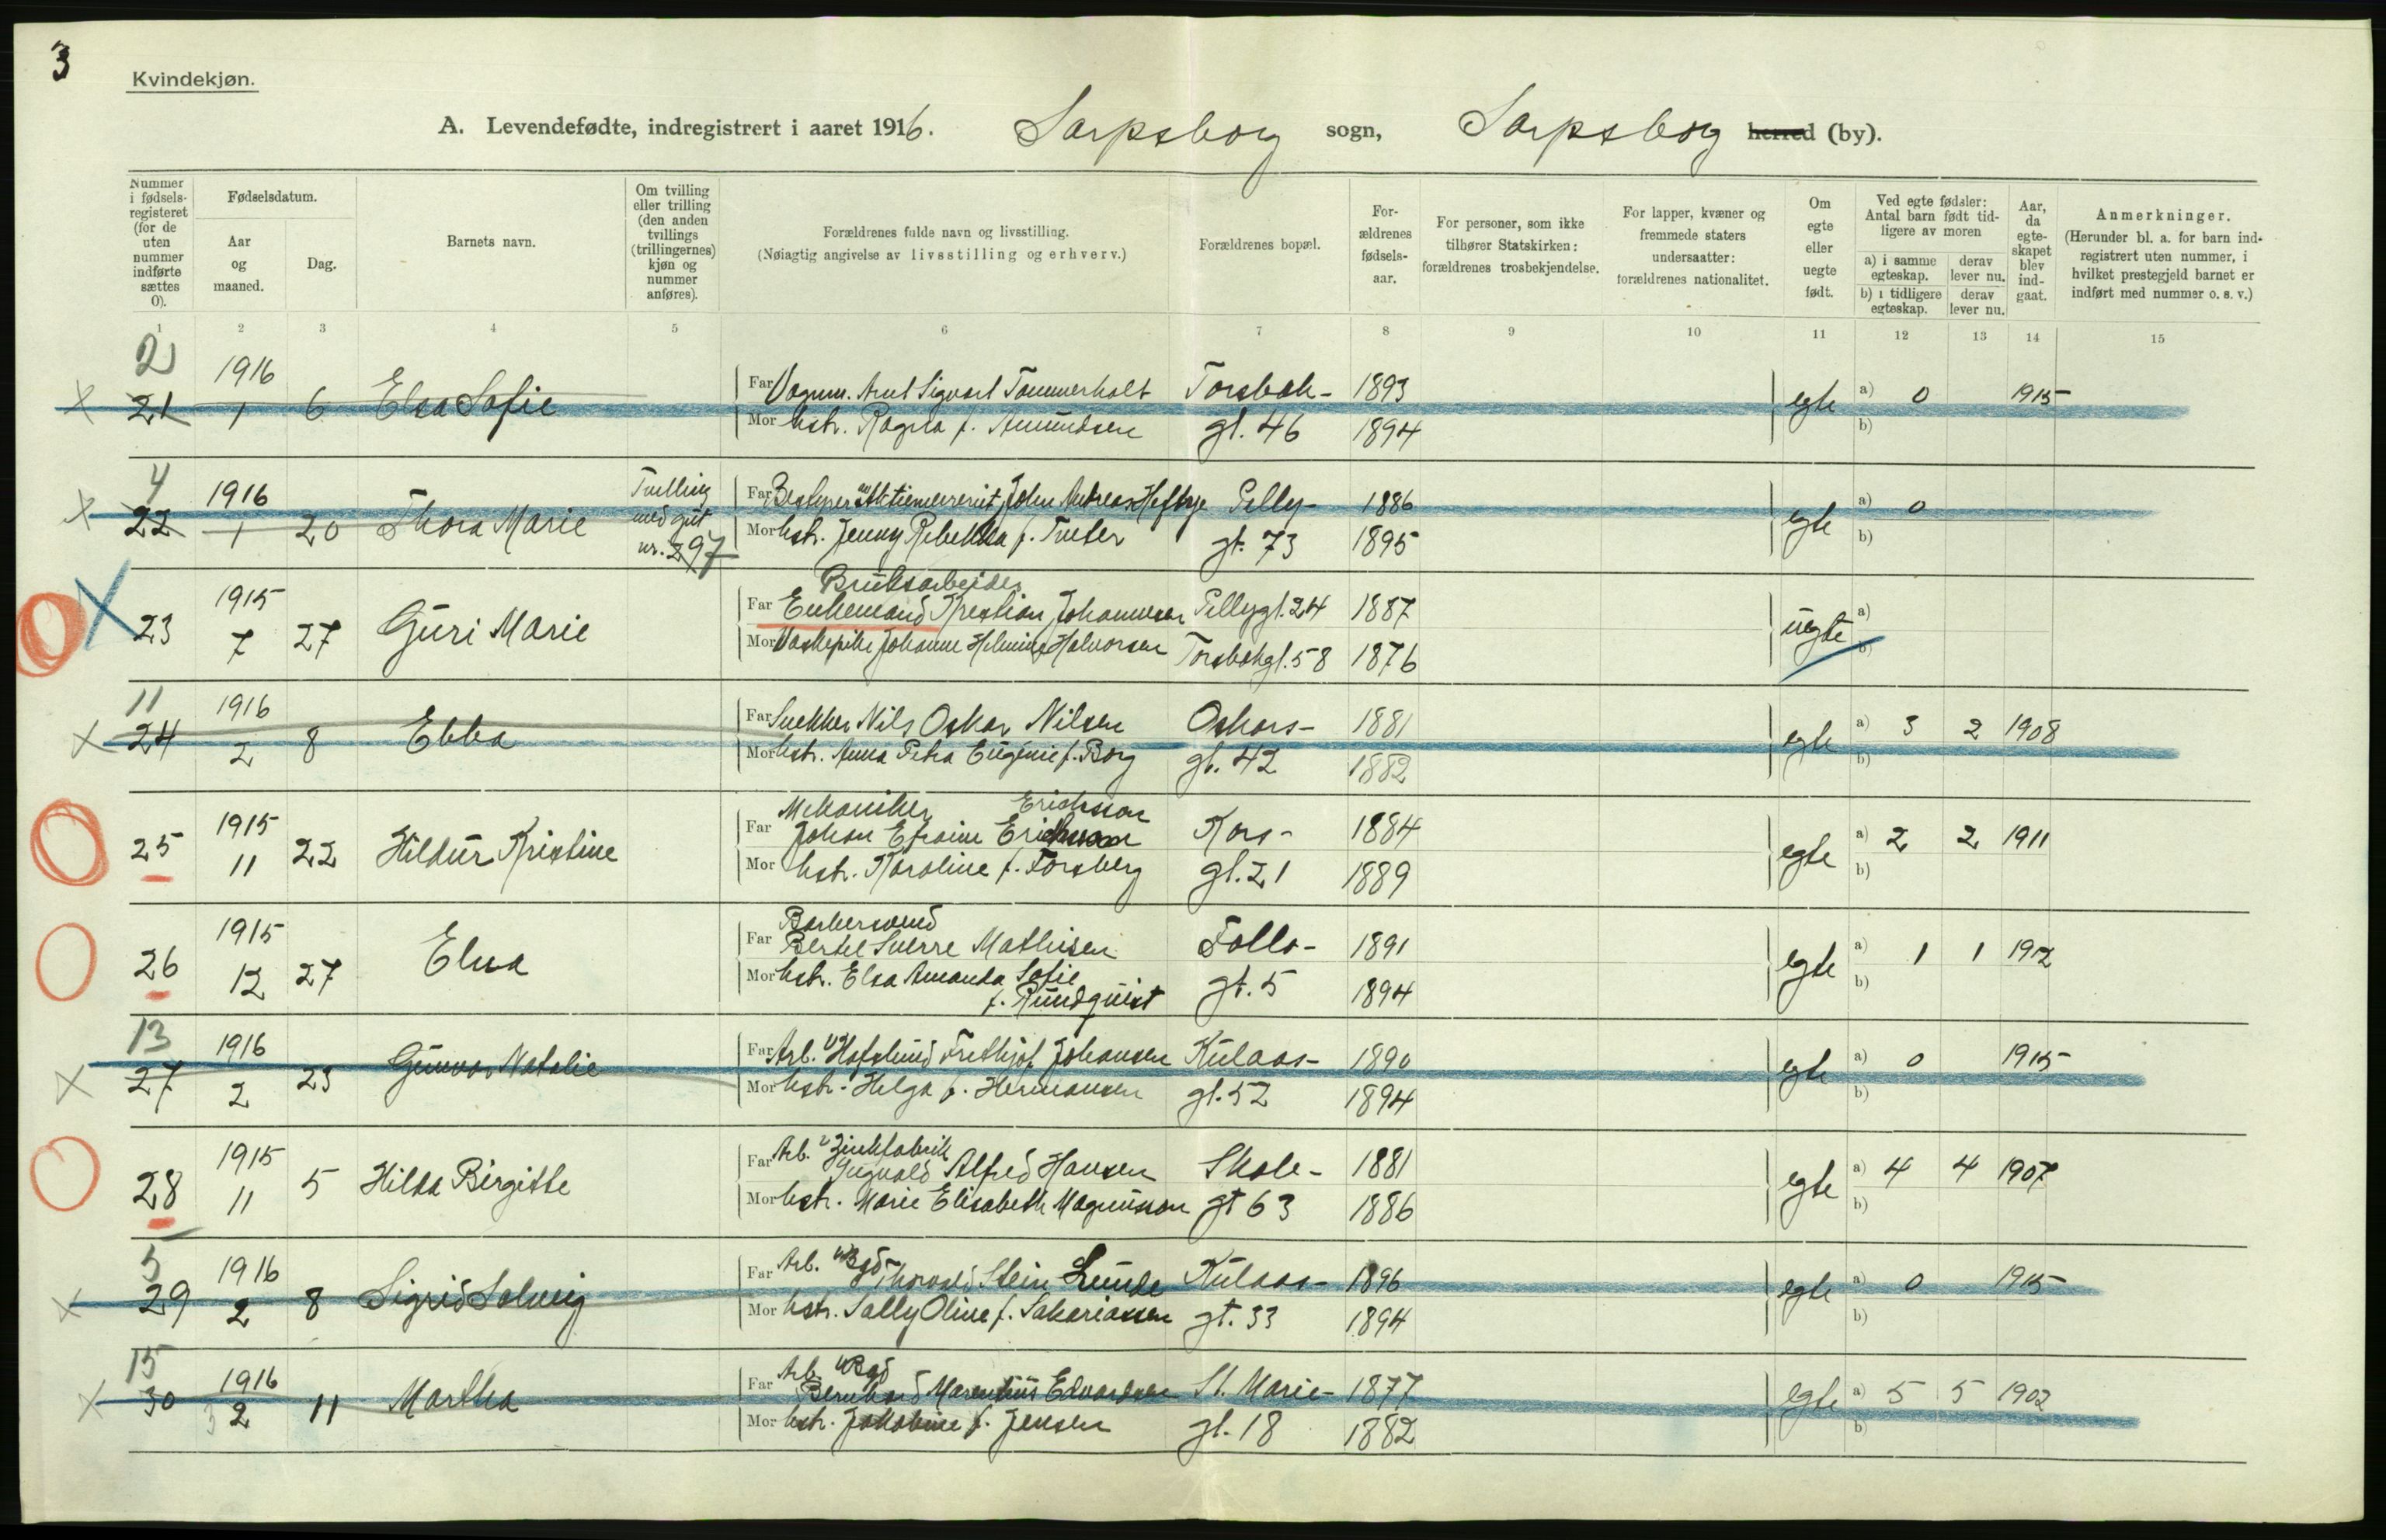 3
Kvindekjøn.
A. Levendefødte, indregistrert i aaret 1916. Sarpsborg sogn, Sarpsborg herred (by).
Nummer i fødsels-registeret (for de uten nummer indførte sættes 0).
Fødselsdatum.
Aar og maaned.
Dag.
Barnets navn.
Om tvilling eller trilling (den anden tvillings (trillingernes) kjøn og nummer anføres).
Forældrenes fulde navn og livsstilling.
(Nøiagtig angivelse av livsstilling og erhverv.)
Forældrenes bopæl.
For-ældrenes fødsels-aar.
For personer, som ikke tilhører Statskirken: forældrenes trosbekjendelse.
For lapper, kvæner og fremmede staters undersaatter: forældrenes nationalitet.
Om egte eller uegte født.
Ved egte fødsler: Antal barn født tid-ligere av moren
a) i samme egteskap.
derav lever nu.
b) i tidligere egteskap.
derav lever nu.
Aar, da egte-skapet blev ind-gaat.
Anmerkninger.
(Herunder bl. a. for barn ind-registrert uten nummer, i hvilket prestegjeld barnet er indført med nummer o. s. v.)
1 2 3 4 5 6 7 8 9 10 11 12 13 14 15
2
1916
21 1 6 Elsa Sofie
Far Vognm. Arnt Sigvart Tammerholt Torsbek- 1893
Mor hstr. Ragna f. Amundsen gt. 46 1894
egte a) 0 1915
b)
4
1916
22 1 20 Thora Marie
Tvilling med gut nr. 297
Far Bestyrer John Andreas Heftye Pelly- 1886
Mor hstr. Jenny Rebekka f. Tveter gt. 73 1895
egte a) 0
b)
1915
23 7 27 Guri Marie
Bruksarbeider
Far Enkemand Kristian Johannesen Pellygt. 24 1887
Mor Vaskepike Johanne Helmine Halvorsen Torsbekgt. 58 1876
uegte a)
b)
11
1916
24 2 8 Ebba
Far Snekker Nils Oskar Nilsen Oskars- 1881
Mor hstr. Anna Petra Eugenie f. Borg gt. 42 1882
egte a) 3 2 1908
b)
1915
25 11 22 Hildur Kristine
Mekaniker Erichsson
Far Johan Efraim Erichsson Kors- 1884
Mor hstr. Karoline f. Forsberg gt. 21 1889
egte a) 2 2 1911
b)
1915
26 12 27 Elna
Barbersvend
Far Bertel Sverre Mathisen Follo- 1891
Mor hstr. Elsa Amanda Sofie
f. Rundquist gt. 5 1894
egte a) 1 1 1912
b)
13
1916
27 2 23 Gunvor Natalie
Far Arb. v/Hafslund Frithjof Johansen Kulaas- 1890
Mor hstr. Helga f. Hermansen gt. 52 1894
egte a) 0 1915
b)
1915
28 11 5 Hilda Birgitte
Arb. v Zinkfabrik
Far Ingvald Alfred Hansen Skole- 1881
Mor hstr. Marie Elisabeth Magnusson gt 63 1886
egte a) 4 4 1907
b)
5
1916
29 2 8 Sigrid Solveig
Arb. v/Bgd
Far Thorvald Stein Lunde Kulaas- 1896
Mor hstr. Sally Oline f. Sakariassen gt. 33 1894
egte a) 0 1915
b)
15
1916
30 2 11 Martha
Arb. v/Bgd
Far Bernhard Marentius Edvardsen St. Marie- 1877
Mor hstr. Jakobine f. Jensen gt. 18 1882
egte a) 5 5 1902
b)